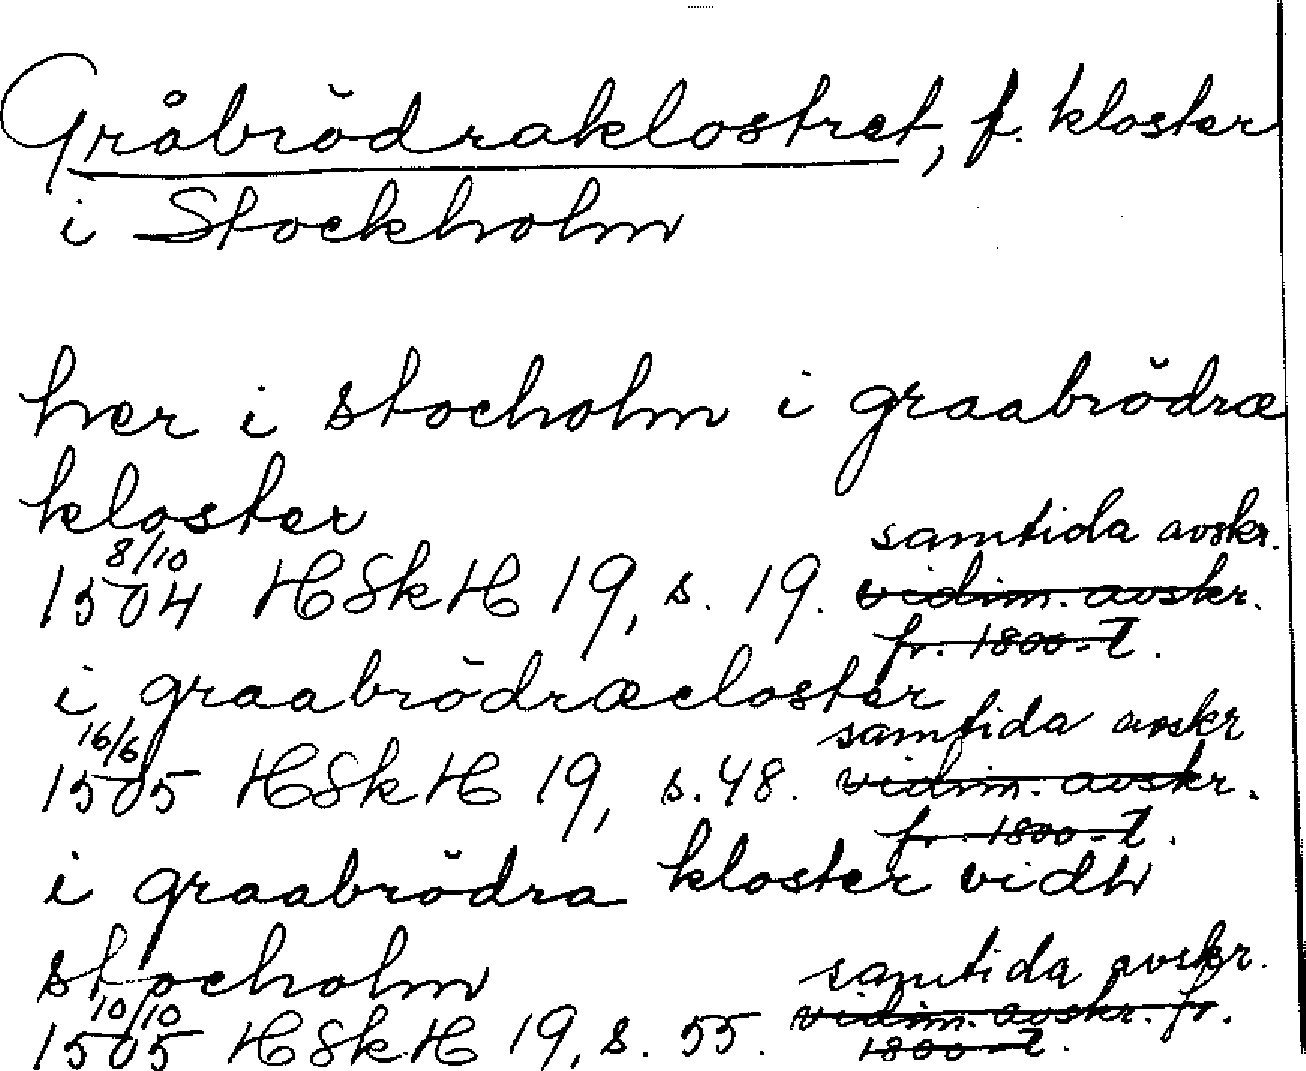 Gråbrödraklostret, f. kloster
i Stockholm
her i stocholm i graabrödræ
kloster
samtida avskr.
8/10
1504 HSkH 19, s. 19. vidim. avskr.
fr. 1800-t.
i graabrödræcloster
samtida avskr
16/6
1505 HSkH 19, s. 48. vidim. avskr.
fr. 1800-t.
i graabrödra kloster vidh
stocholm
samtida avskr.
10/10
1505 HSkH 19, s. 55. vidim. avskr. fr.
1800-t.